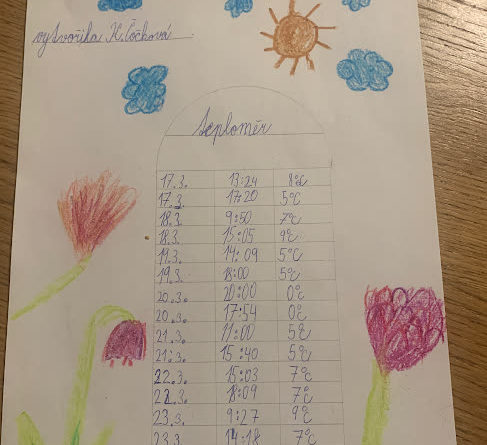 vytvořila K. Čočková
Teploměr
17.3. 13:24 8°C
17.3. 17:20 5°C
18.3. 9:50 7°C
18.3. 15:05 9°C
19.3. 14:09 5°C
19.3. 18:00 5°C
20.3. 20:00 0°C
20.3. 17:54 0°C
21.3. 11:00 5°C
21.3. 15:40 5°C
22.3. 15:03 7°C
22.3. 18:09 7°C
23.3. 9:27 9°C
23.3. 14:18 7°C